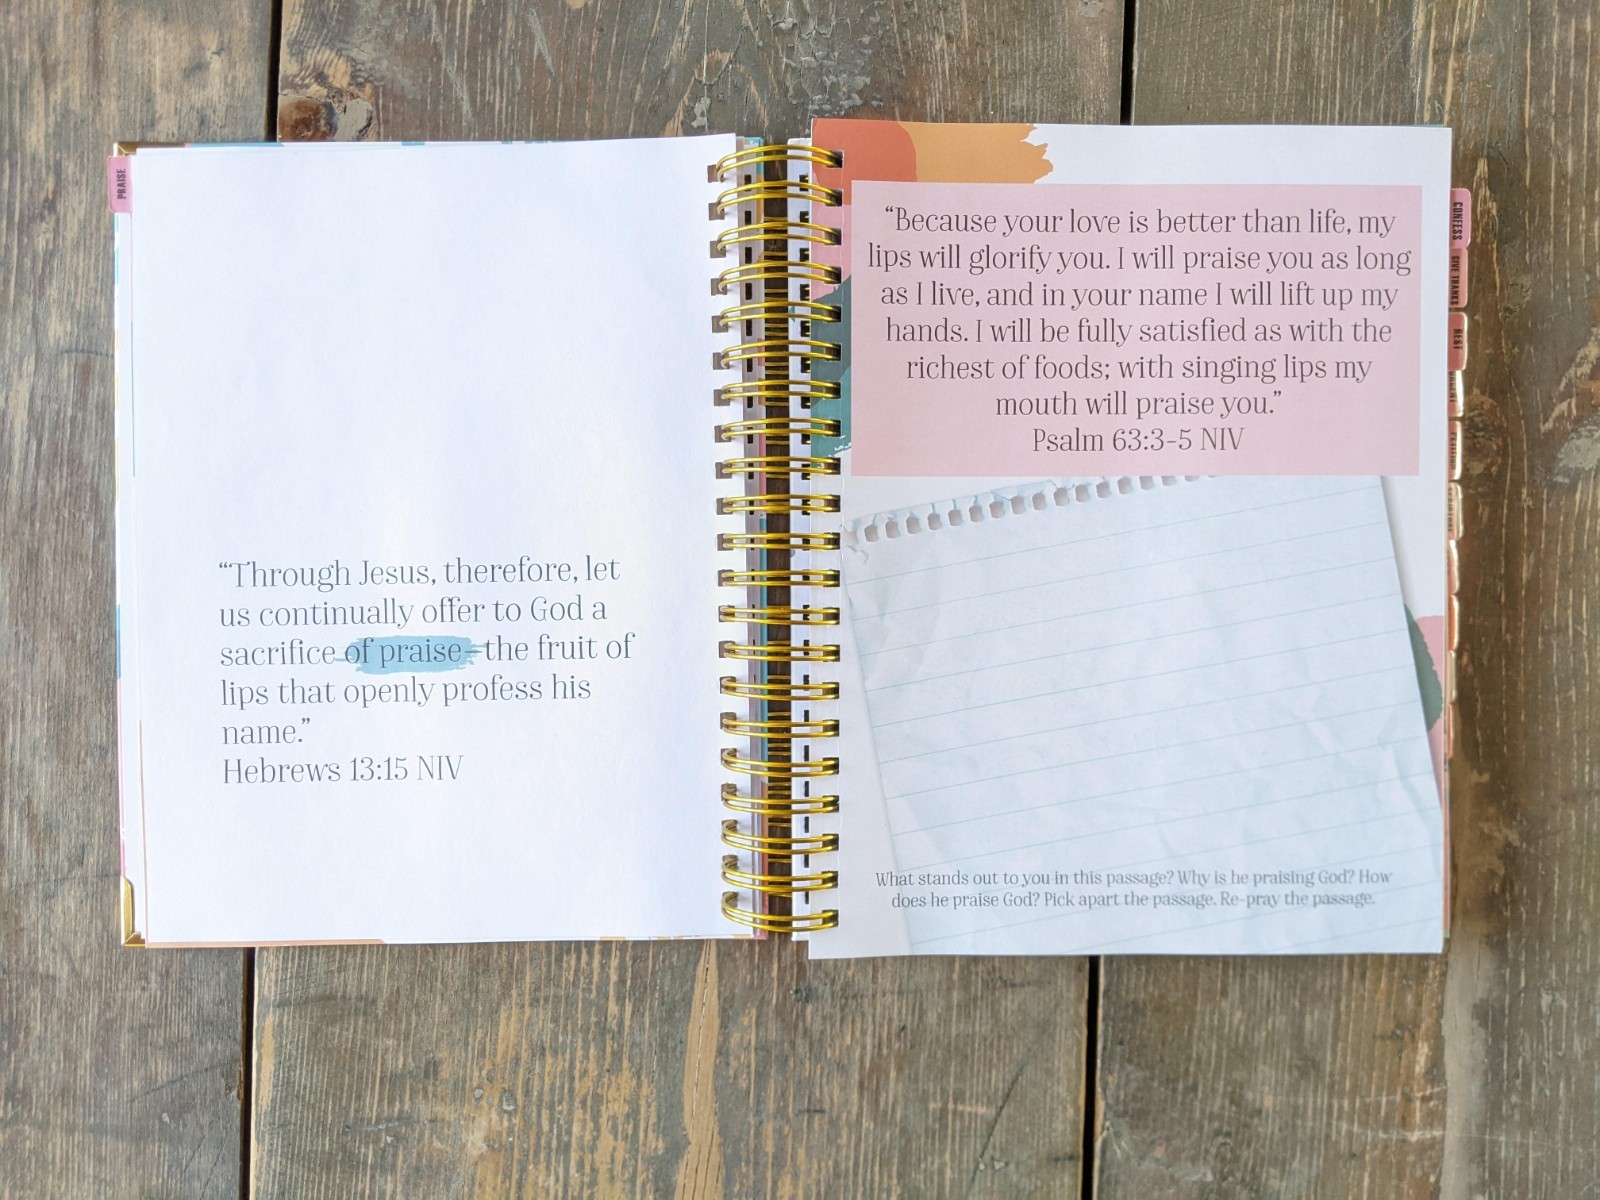 PRAISE
“Through Jesus, therefore, let
us continually offer to God a
sacrifice of praise—the fruit of
lips that openly profess his
name.”
Hebrews 13:15 NIV
“Because your love is better than life, my
lips will glorify you. I will praise you as long
as I live, and in your name I will lift up my
hands. I will be fully satisfied as with the
richest of foods; with singing lips my
mouth will praise you.”
Psalm 63:3-5 NIV
What stands out to you in this passage? Why is he praising God? How
does he praise God? Pick apart the passage. Re-pray the passage.
CONFESS
GIVE THANKS
REST